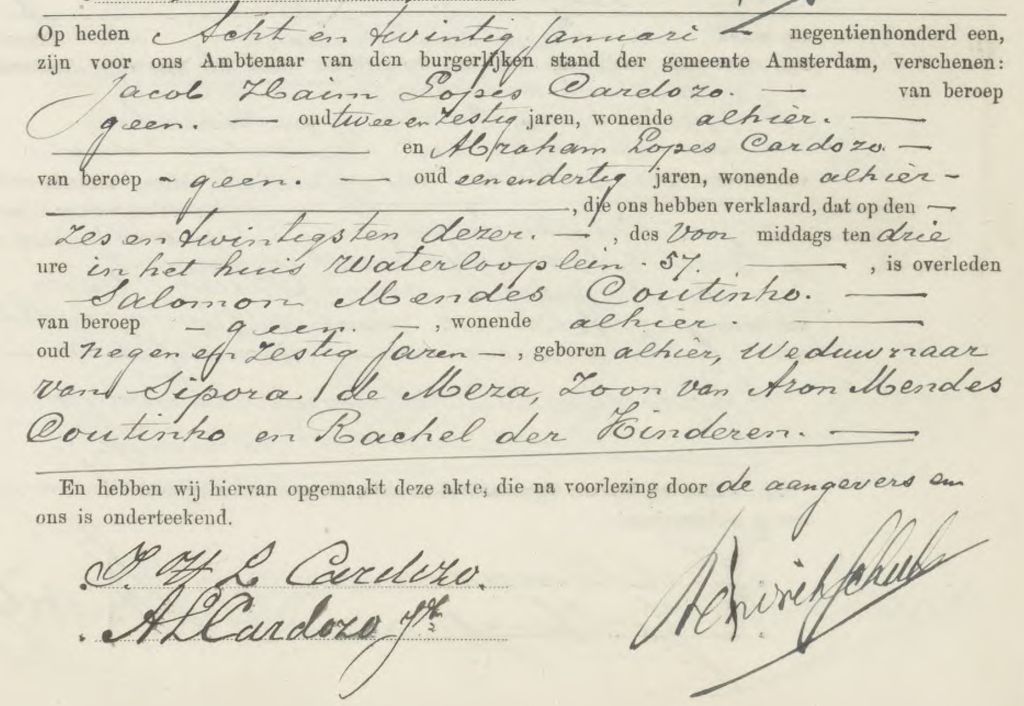 Op heden Acht en twintig Januari negentienhonderd een,
zijn voor ons Ambtenaar van den burgerlijken stand der gemeente Amsterdam, verschenen:
Jacob Haim Lopes Cardozo. — van beroep
geen. — oud twee en zestig jaren, wonende alhier. —
en Abraham Lopes Cardozo. —
van beroep - geen. — oud een en dertig jaren, wonende alhier -
, die ons hebben verklaard, dat op den —
zes en twintigsten dezer. — , des Voor middags ten drie
ure in het huis Waterlooplein - 57. — , is overleden
Salomon Mendes Coutinho. —
van beroep - geen. — , wonende alhier. —
oud negen en zestig jaren — , geboren alhier, Weduwnaar
van Sipora de Meza, Zoon van Aron Mendes
Coutinho en Rachel der Kinderen. —
En hebben wij hiervan opgemaakt deze akte, die na voorlezing door de aangevers en
ons is onderteekend.
J. H L Cardozo.
A L Cardozo Jr